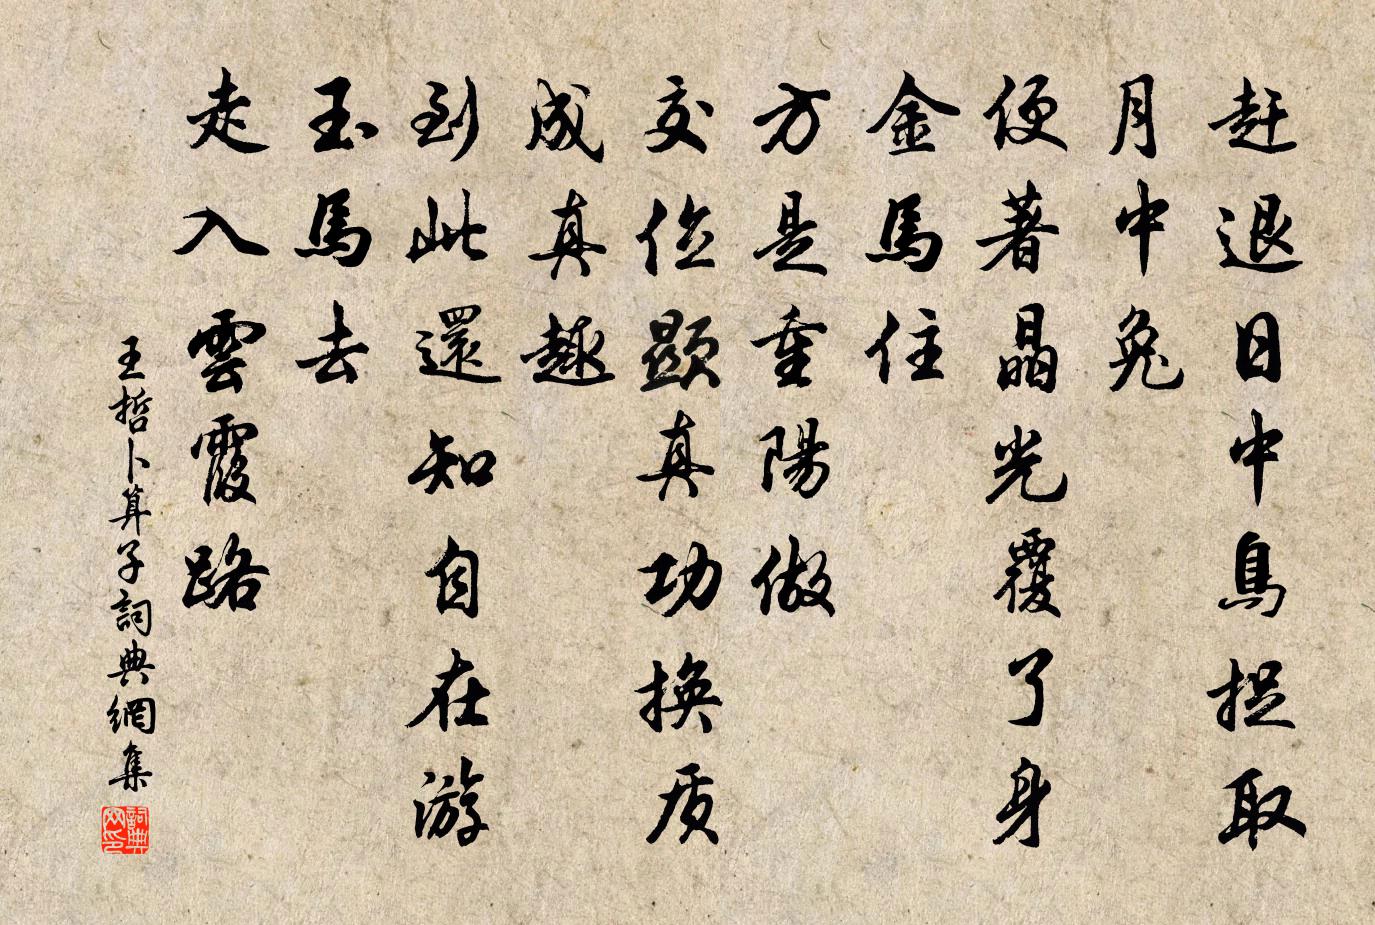 赶退日中烏捉取
月中兔
便著晶光覆了身
金馬住
方是重陽做
交位顯真功換质
成真趣
到此還知自在游
玉馬去
走入雲霞路
王哲卜算子詞典網集
詞典
网印